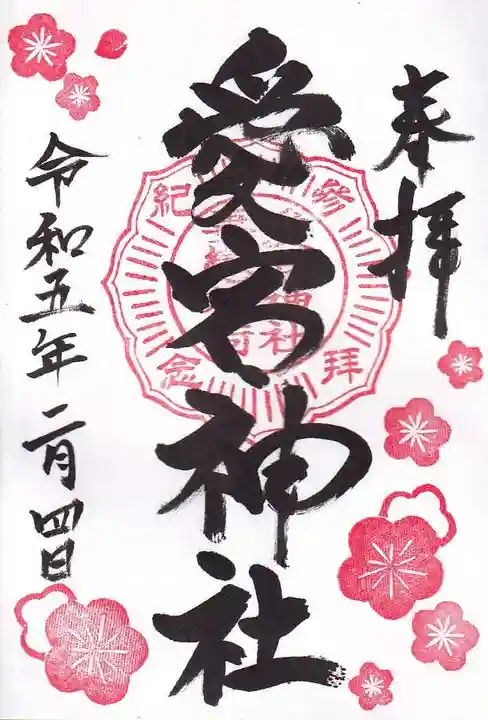 奉拝
愛宕神社
令和五年二月四日
参拝
紀念
神社